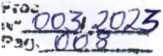 Proc
Nº 003.2023
Pag. 008